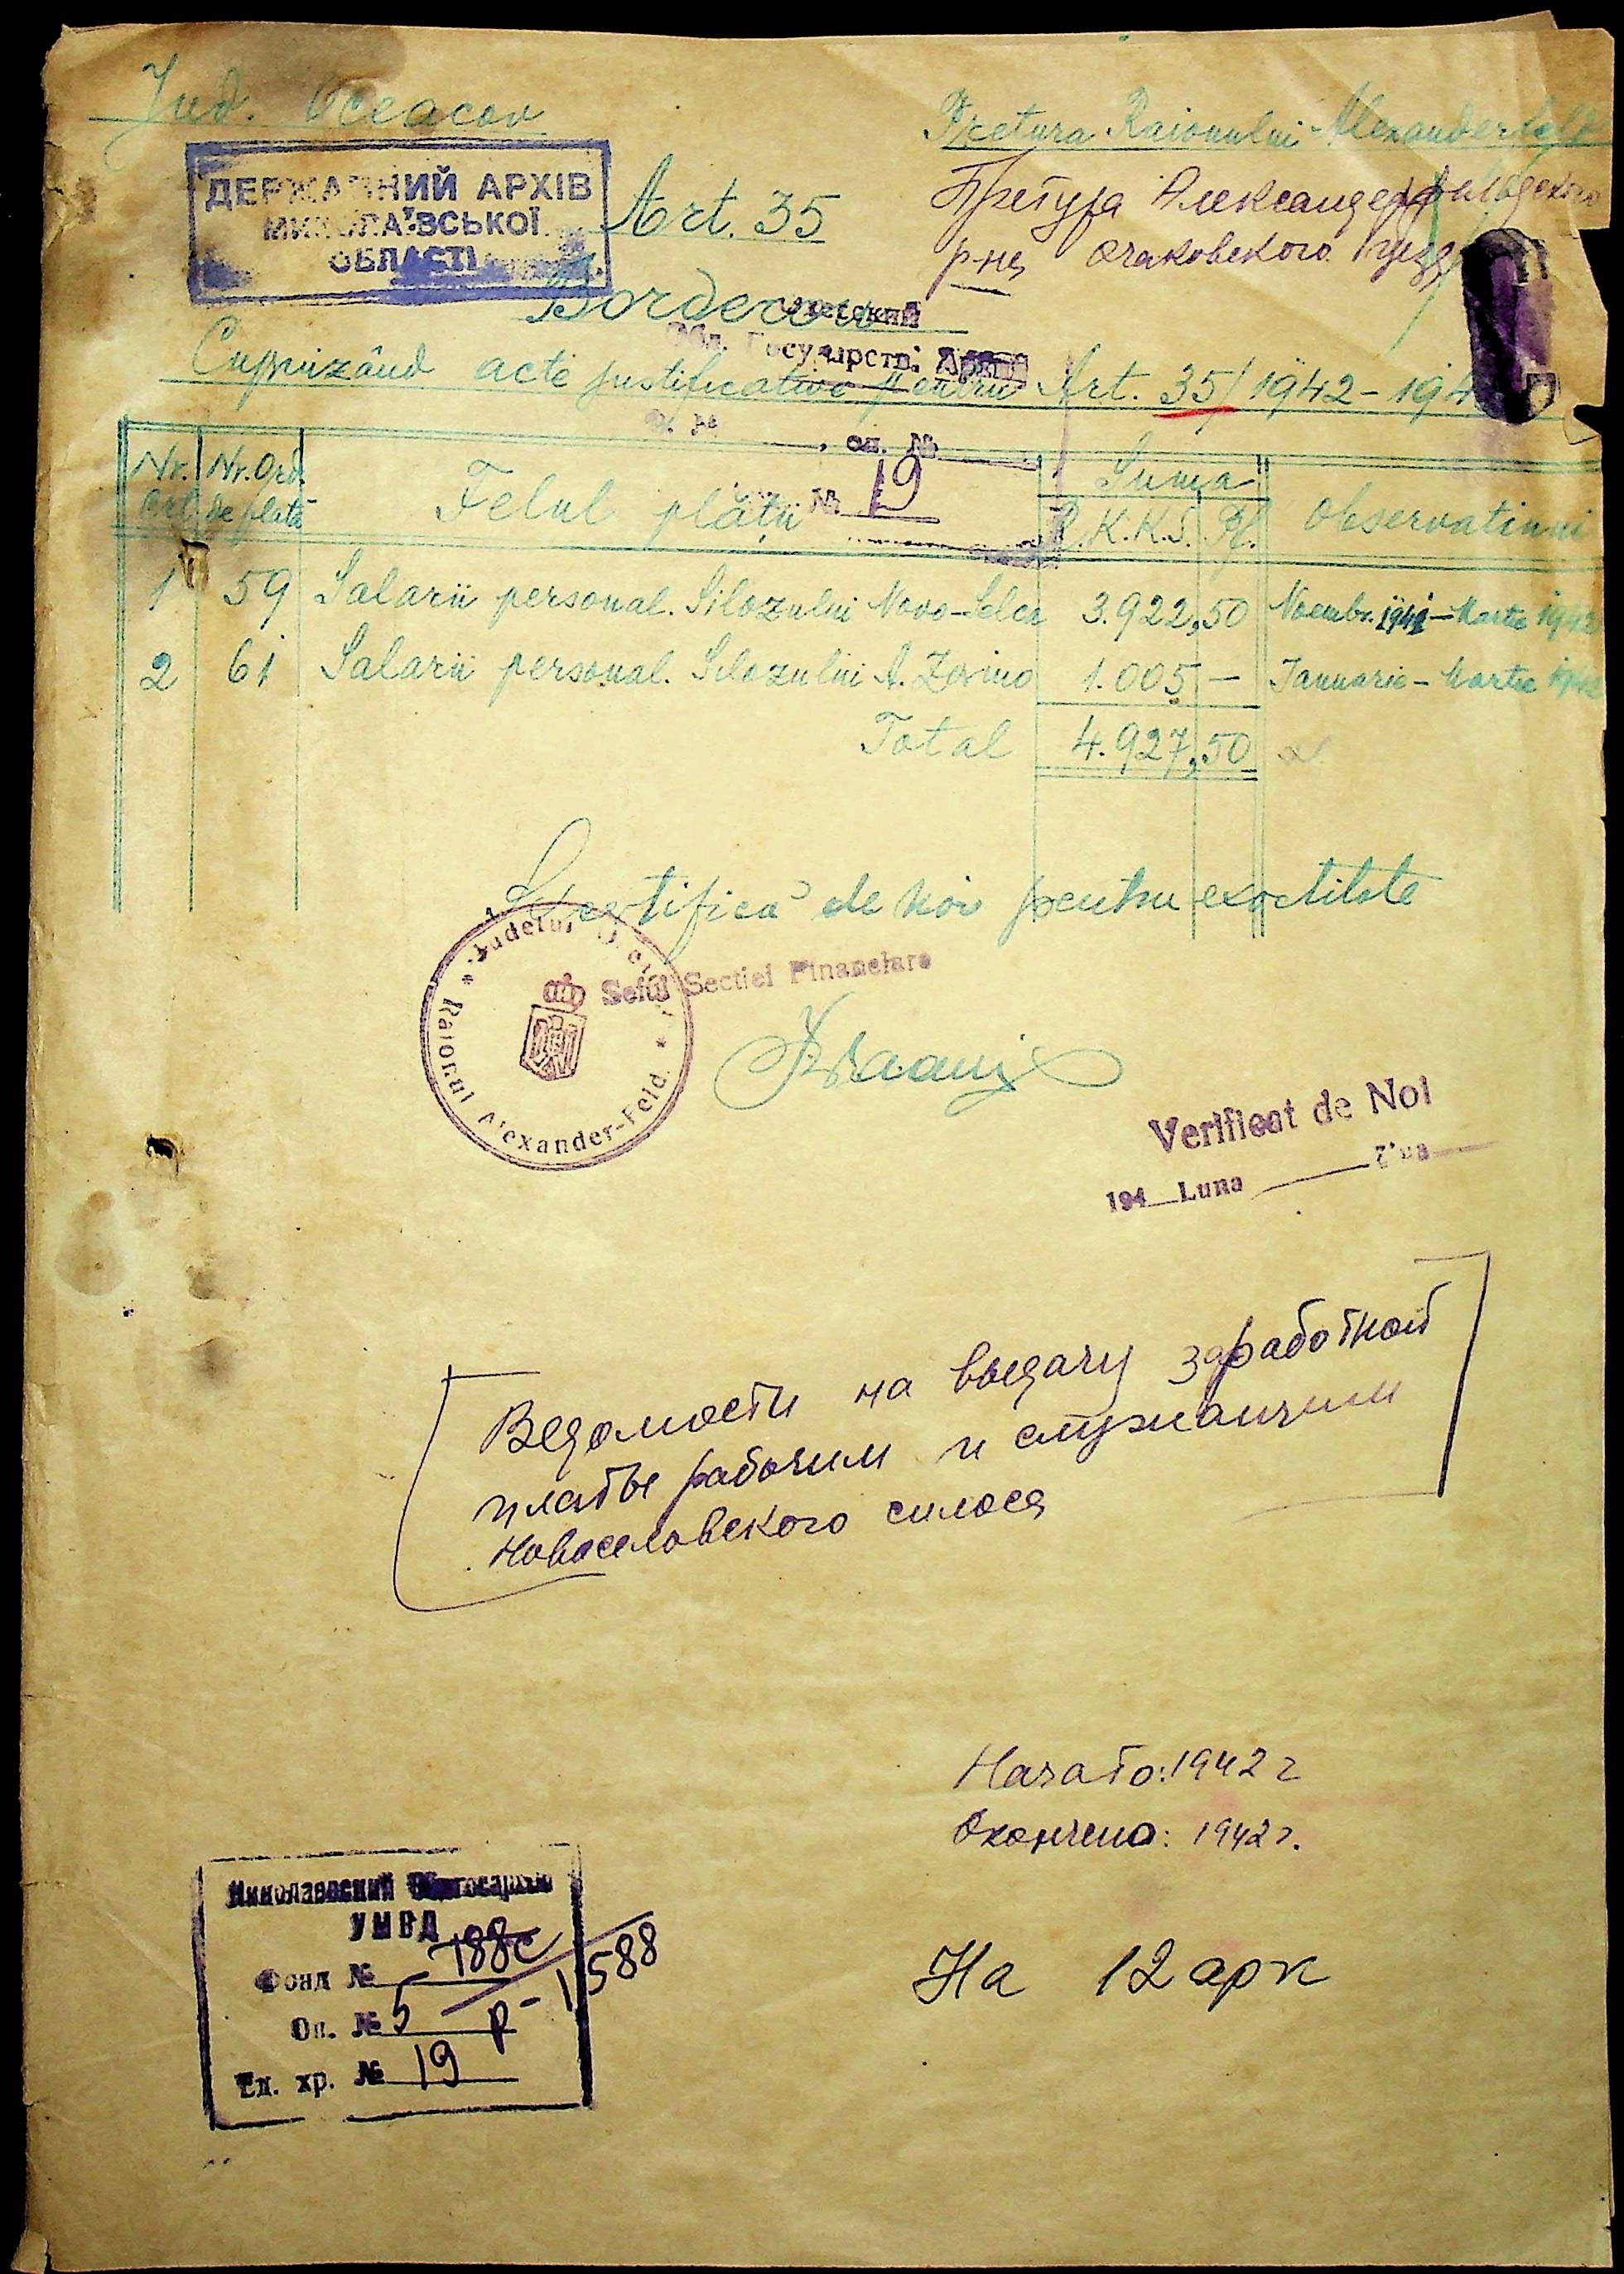 Jud. Oceacov
Pretura Raionului Alexanderfeld
ДЕРЖАВНИЙ АРХІВ
МИКОЛАЇВСЬКОЇ
ОБЛАСТІ
Art. 35
Претура Александерфильдского
р-на Очаковского уезда
Borderou
Обл. Государств. Архив
Cuprizând acte justificative pentru Art. 35/1942-194
оп. №
№ 19
Nr. Art. Nr. Ord. de plată Felul plății Suma R.K.K.S. Pf. Observatiuni
1 59 Salarii personal. Silozului Novo-Selca 3.922,50 Noembr. 1941-Martie 1942
2 61 Salarii personal. Silozului A. 1.005 - Januarie-Martie 1942
Total 4.927,50
Se certifică de noi pentru exactitate
Judetul Oceacov * Raionul Alexander-Feld. *
Seful Sectiei Financiare
Verificat de Noi
194 Luna Ziua
Ведомости на выдачу заработной
платы рабочим и служащим
Новоселовского силоса
Начато: 1942 г
Окончено: 1942 г.
Николаевский Облгосархив
УМВД
Фонд № 188с
р-1588
Оп. № 5
Ед. хр. № 19
На 12 арк